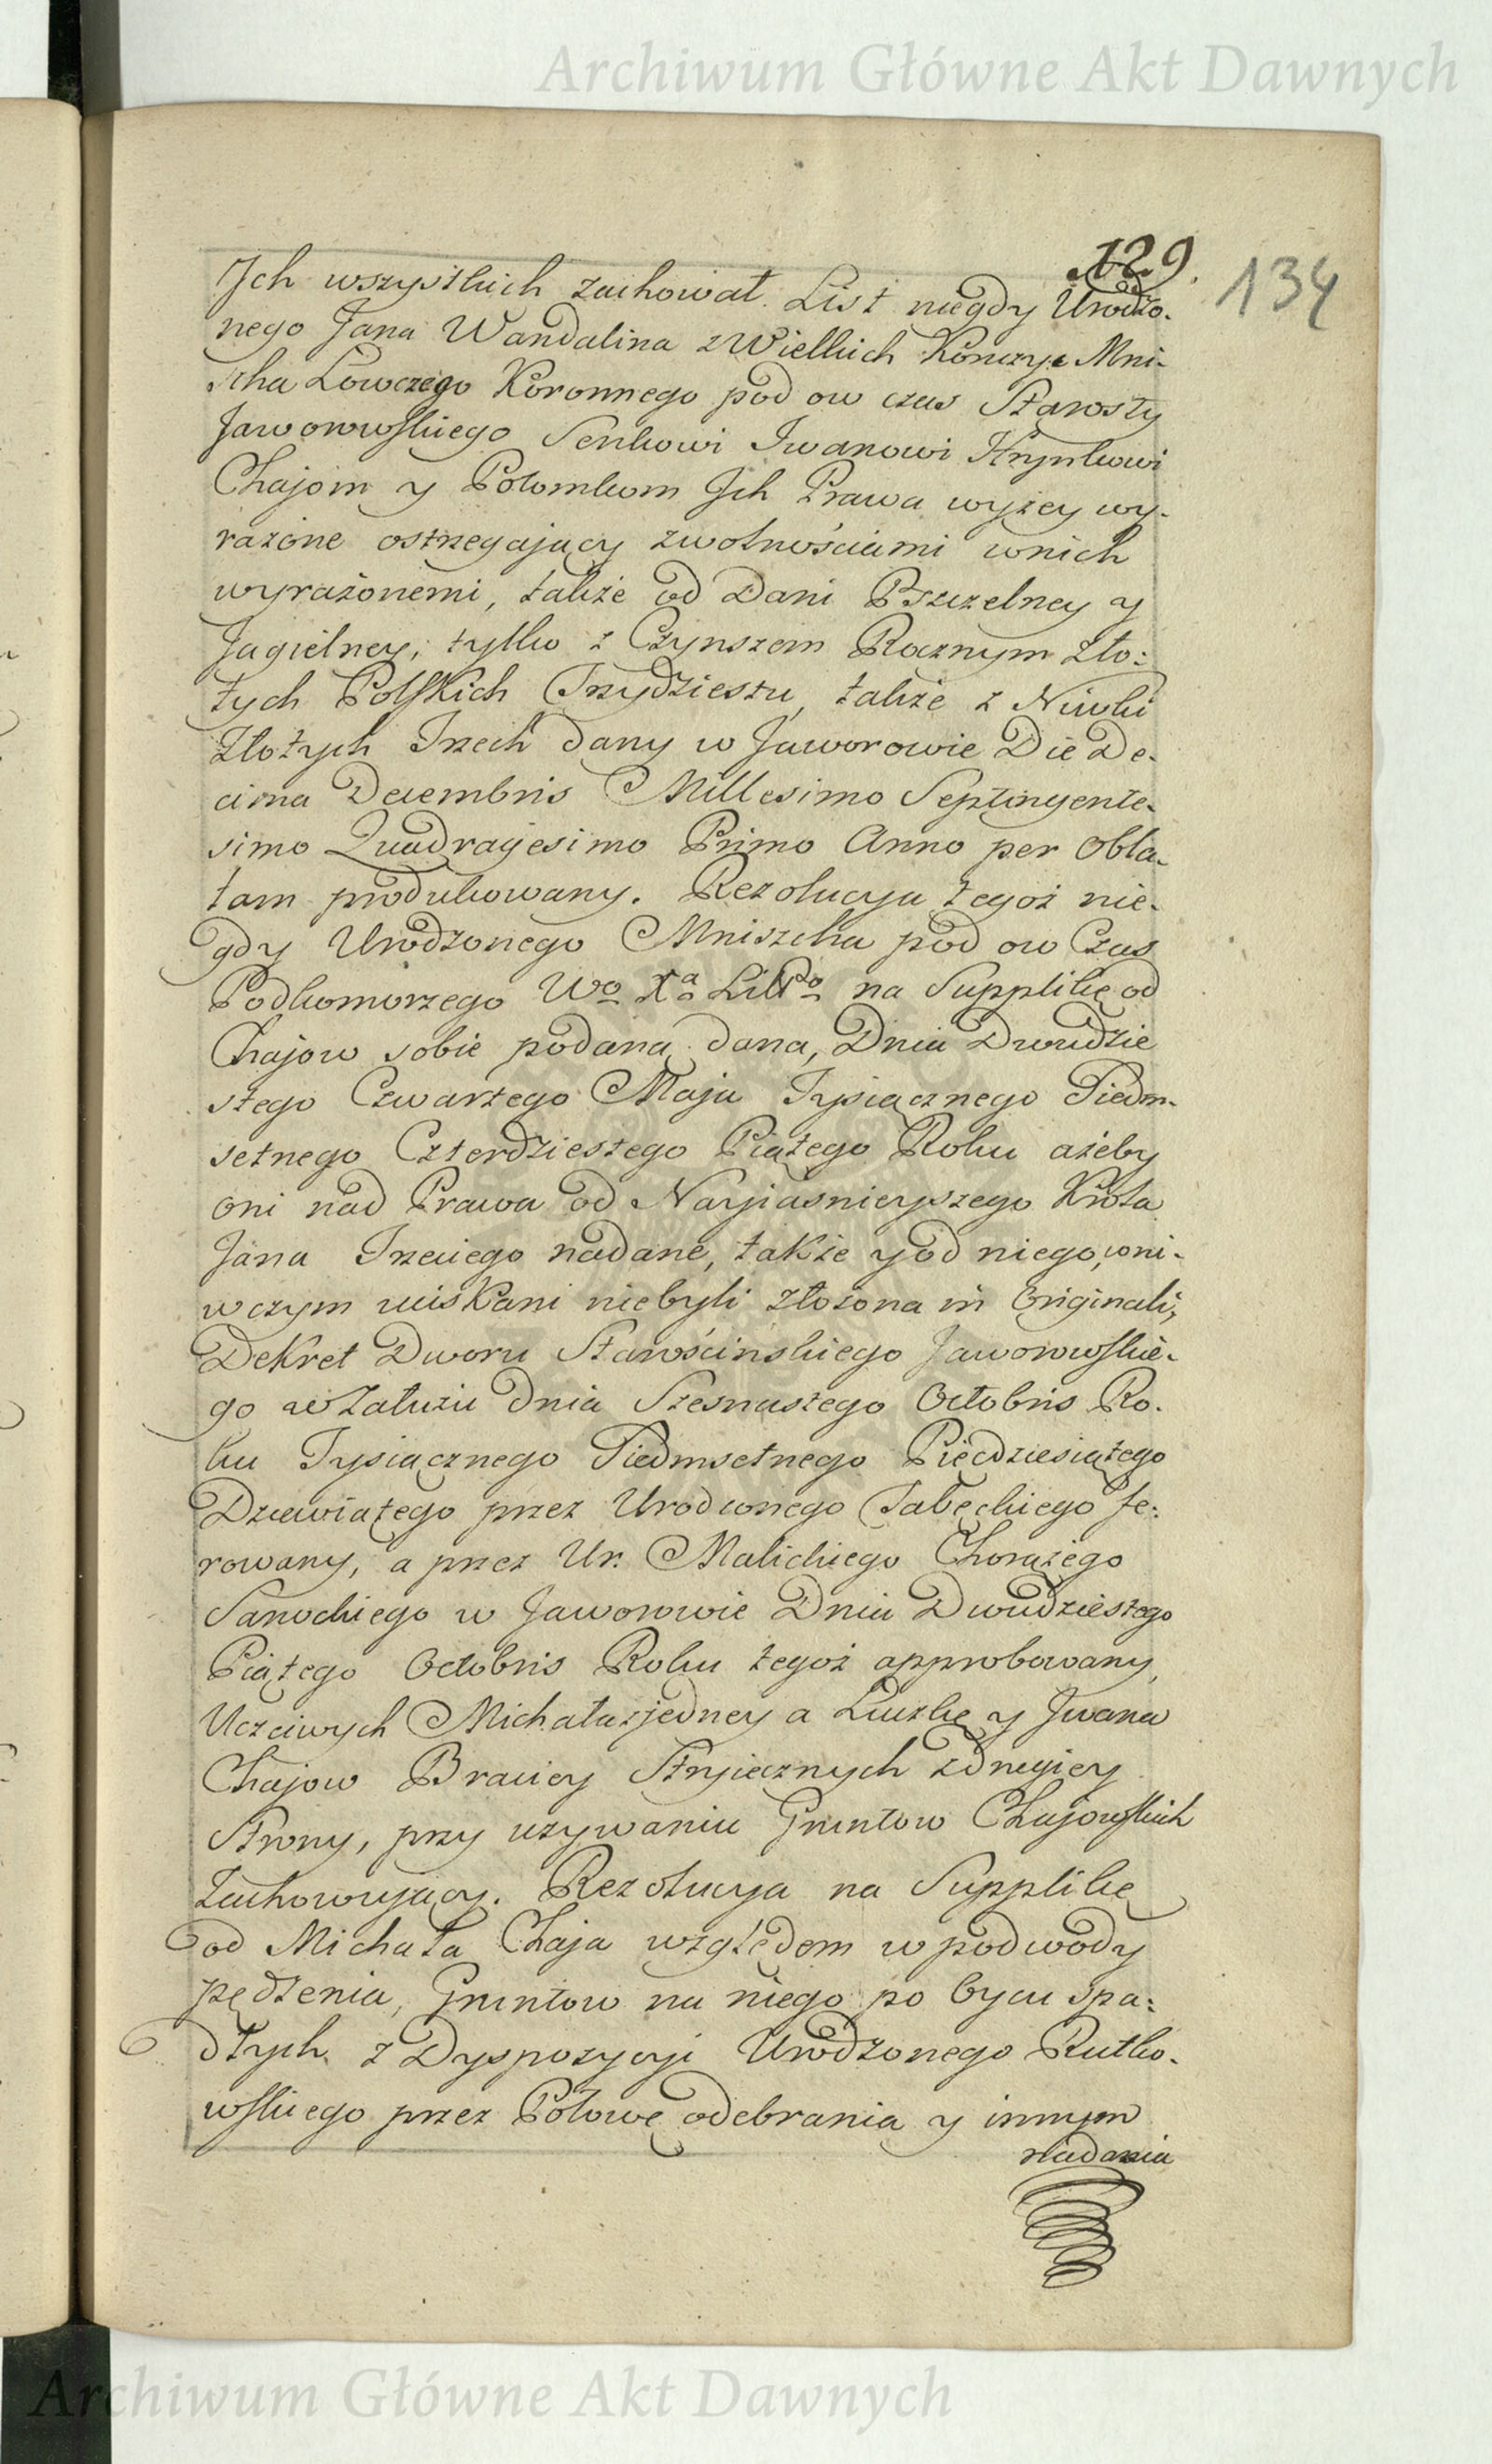 Archiwum Główne Akt Dawnych
129.
134
Ich wszystkich zachował. List niegdy Urodzo-
nego Jana Wandalina z Wielkich Konczyc Mni-
scha Łowczego Koronnego pod ow czas Starosty
Jaworowskiego Senkowi Iwanowi Hrynkowi
Chajom y Potomkom Ich Prawa wyżey wy-
rażone ostrzegaiący zwolnościami wnich
wyrażonemi, także od Dani Pszczelney y
Jagielney, tylko z Czynszem Rocznym Zło:
tych Polskich Trzydziestu, także z Niwki
Złotych Trzech dany w Jaworowie Die De-
cima Decembris Millesimo Septingente-
simo Quadragesimo Primo Anno per Obla-
tam produkowany. Rezolucya tegoż nie-
gdy Urodzonego Mniszcha pod ow Czas
Podkomorzego Wo Xa Litto na Supplikę od
Chajow sobie podaną dana, Dnia Dwudzie
stego Czwartego Maja Tysiącznego Siedm-
setnego Czterdziestego Piątego Roku ażeby
oni nad Prawa od Nayiasnieyszego Krola
Jana Trzeciego nadane, także y od niego, wni-
wczym uciskani niebyli złożona in Originali,
Dekret Dworu Starościńskiego Jaworowskie-
go w Załuziu dnia Szesnastego Octobris Ro-
ku Tysiącznego Siedmsetnego Pięćdziesiątego
Dziewiątego przez Urodzonego Tabęckiego fe:
rowany, a przez Ur. Malickiego Chorążego
Sanockiego w Jaworowie Dnia Dwudziestego
Piątego Octobris Roku tegoż approbowany,
Uczciwych Michała z jedney a Łuczkę y Iwana
Chajow Braciey Stryiecznych z drugiey
Strony, przy używaniu Gruntow Chajowskich
Zachowujący. Rezolucya na Supplikę
od Michała Chaja względem w podwody
pędzenia, Gruntow na niego po Oycu spa:
dłych z Dyspozycyi Urodzonego Rutko-
wskiego przez Połowę odebrania y innym
nadania
Archiwum Główne Akt Dawnych